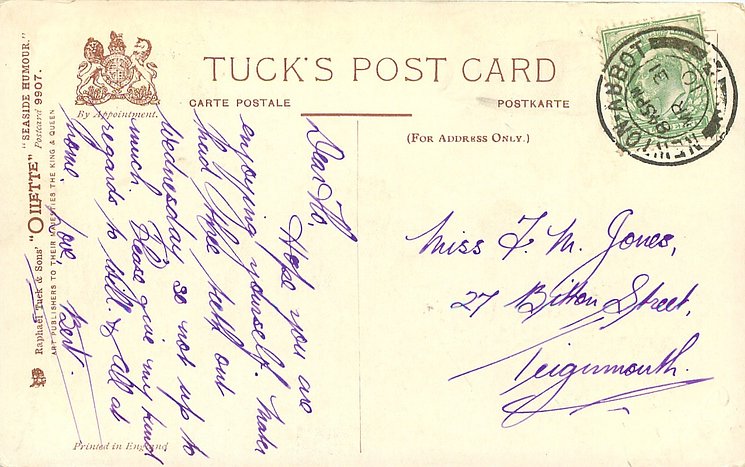 TUCK'S POST CARD
CARTE POSTALE
POSTKARTE
(FOR ADDRESS ONLY.)
By Appointment.
"SEASIDE HUMOUR."
Postcard 9907.
Raphael Tuck & Sons' "OILETTE"
ART PUBLISHERS TO THEIR MAJESTIES THE KING & QUEEN
Printed in England
NEWTON-ABBOT
8.45PM
31
10
Dear Flo,
Hope you are
enjoying yourself.
had three teeth out
Wednesday so not up to
much. Please give my kind
regards to Will. & All at
home. Love, Bert.
Miss F. M. Jones,
27 Bitton Street,
Teignmouth.